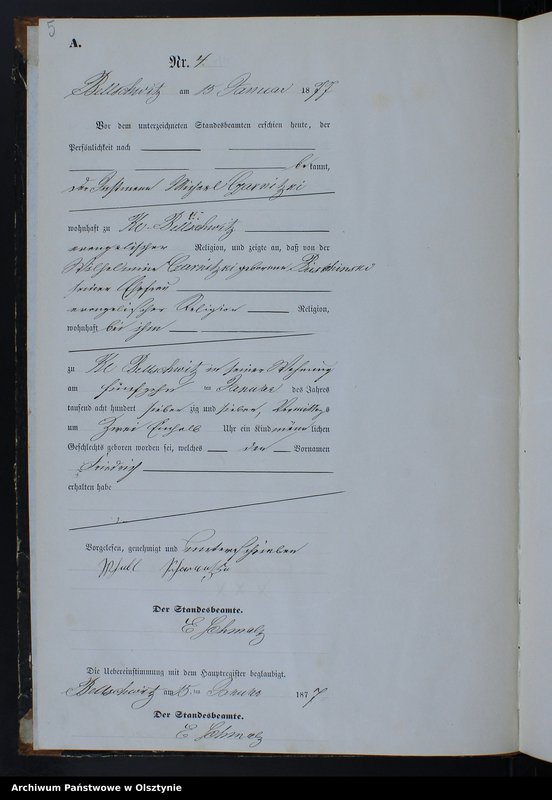 5
A.
Nr. 4.
Bellschwitz am 15 Januar 1877
Vor dem unterzeichneten Standesbeamten erschien heute, der
Persönlichkeit nach
bekannt,
der Instmann Michael Czarnitzki
wohnhaft zu Kl. Bellschwitz
evangelischer Religion, und zeigte an, daß von der
Wilhelmine Czarnitzki geborene
seiner Ehefrau
evangelischer Religion Religion,
wohnhaft bei ihm
zu Kl Bellschwitz in seiner Wohnung
am fünfzehn ten Januar des Jahres
tausend acht hundert siebenzig und sieben, Vormittags
um Zwei Einhalb Uhr ein Kind männlichen
Geschlechts geboren worden sei, welches den Vornamen
Friedrich
erhalten habe
Vorgelesen, genehmigt und unterschrieben
Der Standesbeamte.
E Schmalz
Die Uebereinstimmung mit dem Hauptregister beglaubigt.
Bellschwitz am 15 ten Januar 1877
Der Standesbeamte.
E Schmalz
Archiwum Państwowe w Olsztynie